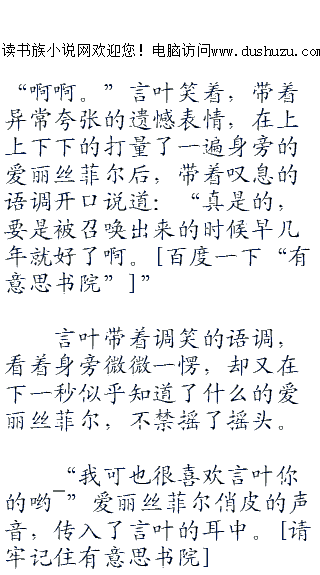 读书族小说网欢迎您！电脑访问www.dushuzu.com
“啊啊。”言叶笑着，带着
异常夸张的遗憾表情，在上
上下下的打量了一遍身旁的
爱丽丝菲尔后，带着叹息的
语调开口说道：“真是的，
要是被召唤出来的时候早几
年就好了啊。[百度一下“有
意思书院”]”
言叶带着调笑的语调，
看着身旁微微一愣，却又在
下一秒似乎知道了什么的爱
丽丝菲尔，不禁摇了摇头。
“我可也很喜欢言叶你
的哟¯”爱丽丝菲尔俏皮的声
音，传入了言叶的耳中。[请
牢记住有意思书院]